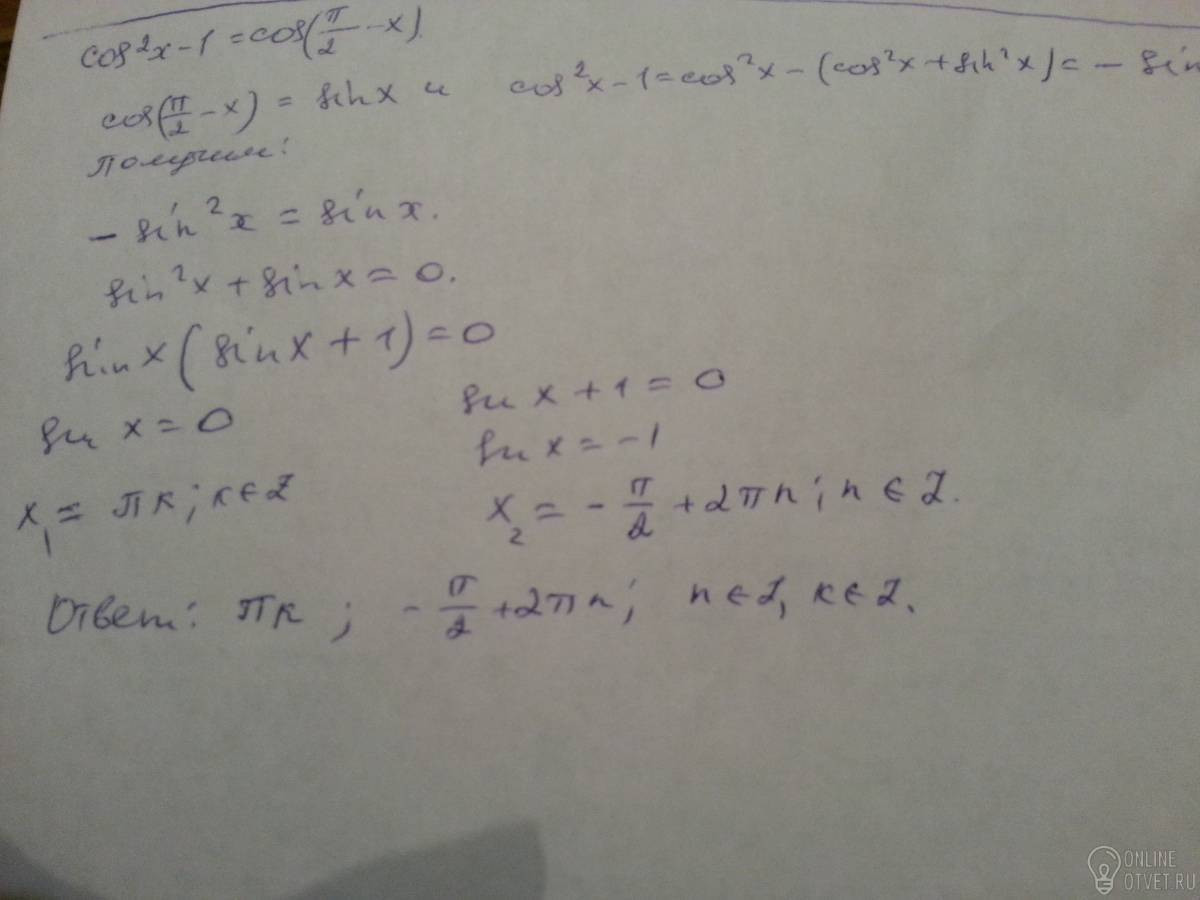 cos²x-1=cos(π/2-x).
cos(π/2-x)=sinx и cos²x-1=cos²x-(cos²x+sin²x)=-sin
Получим:
-sin²x=sinx.
sin²x+sinx=0.
sinx(sinx+1)=0
sin x=0 sin x+1=0
sin x=-1
x₁=πк; к∈Z x₂=-π/2+2πn; n∈Z.
Ответ: πк; -π/2+2πn; n∈Z, к∈Z.
ONLINE
OTVET.RU